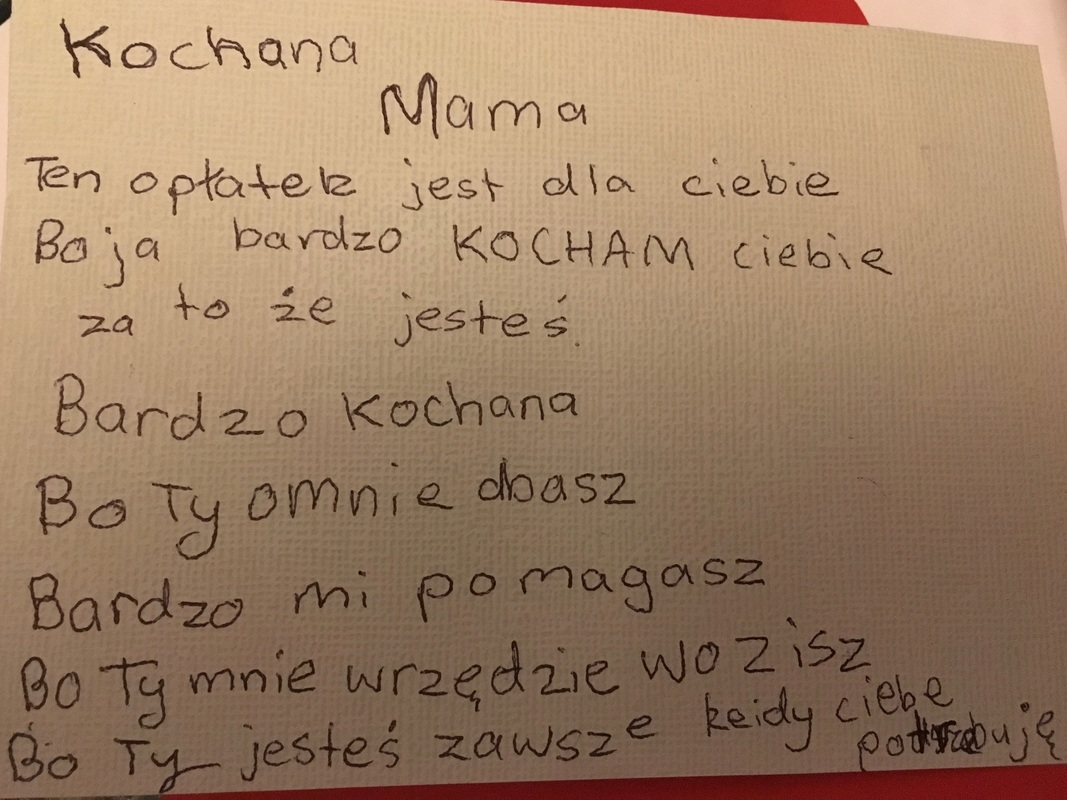 Kochana
Mama
Ten opłatek jest dla ciebie
Bo ja bardzo KOCHAM ciebie
za to że jesteś.
Bardzo kochana
Bo Ty omnie dbasz
Bardzo mi pomagasz
Bo Ty mnie wrzędzie wozisz
Bo Ty jesteś zawsze keidy ciebe